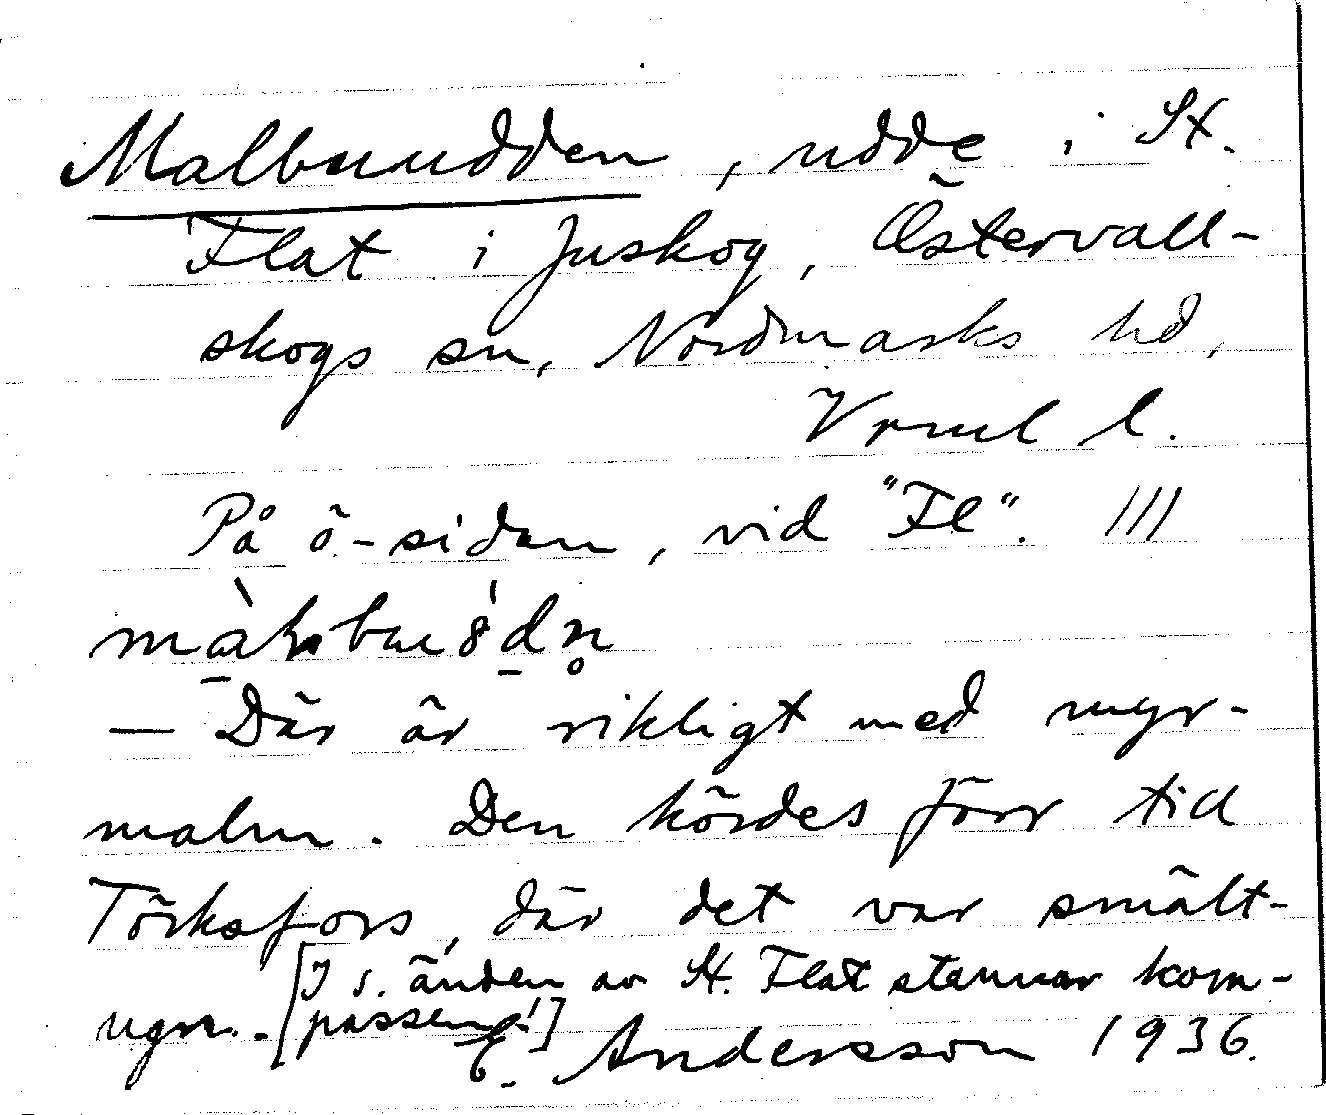 Malbuudden, udde i St.
Flat i Juskog, Östervall-
skogs sn, Nordmarks hd,
Vrml l.
På ö-sidan, vid "Fl". ///
— Där är rikligt med myr-
malm. Den kördes förr till
Törksfors, där det var smält-
ugn. - [I s. änden av St. Flat stannar kom-
passen!]
E. Andersson 1936.